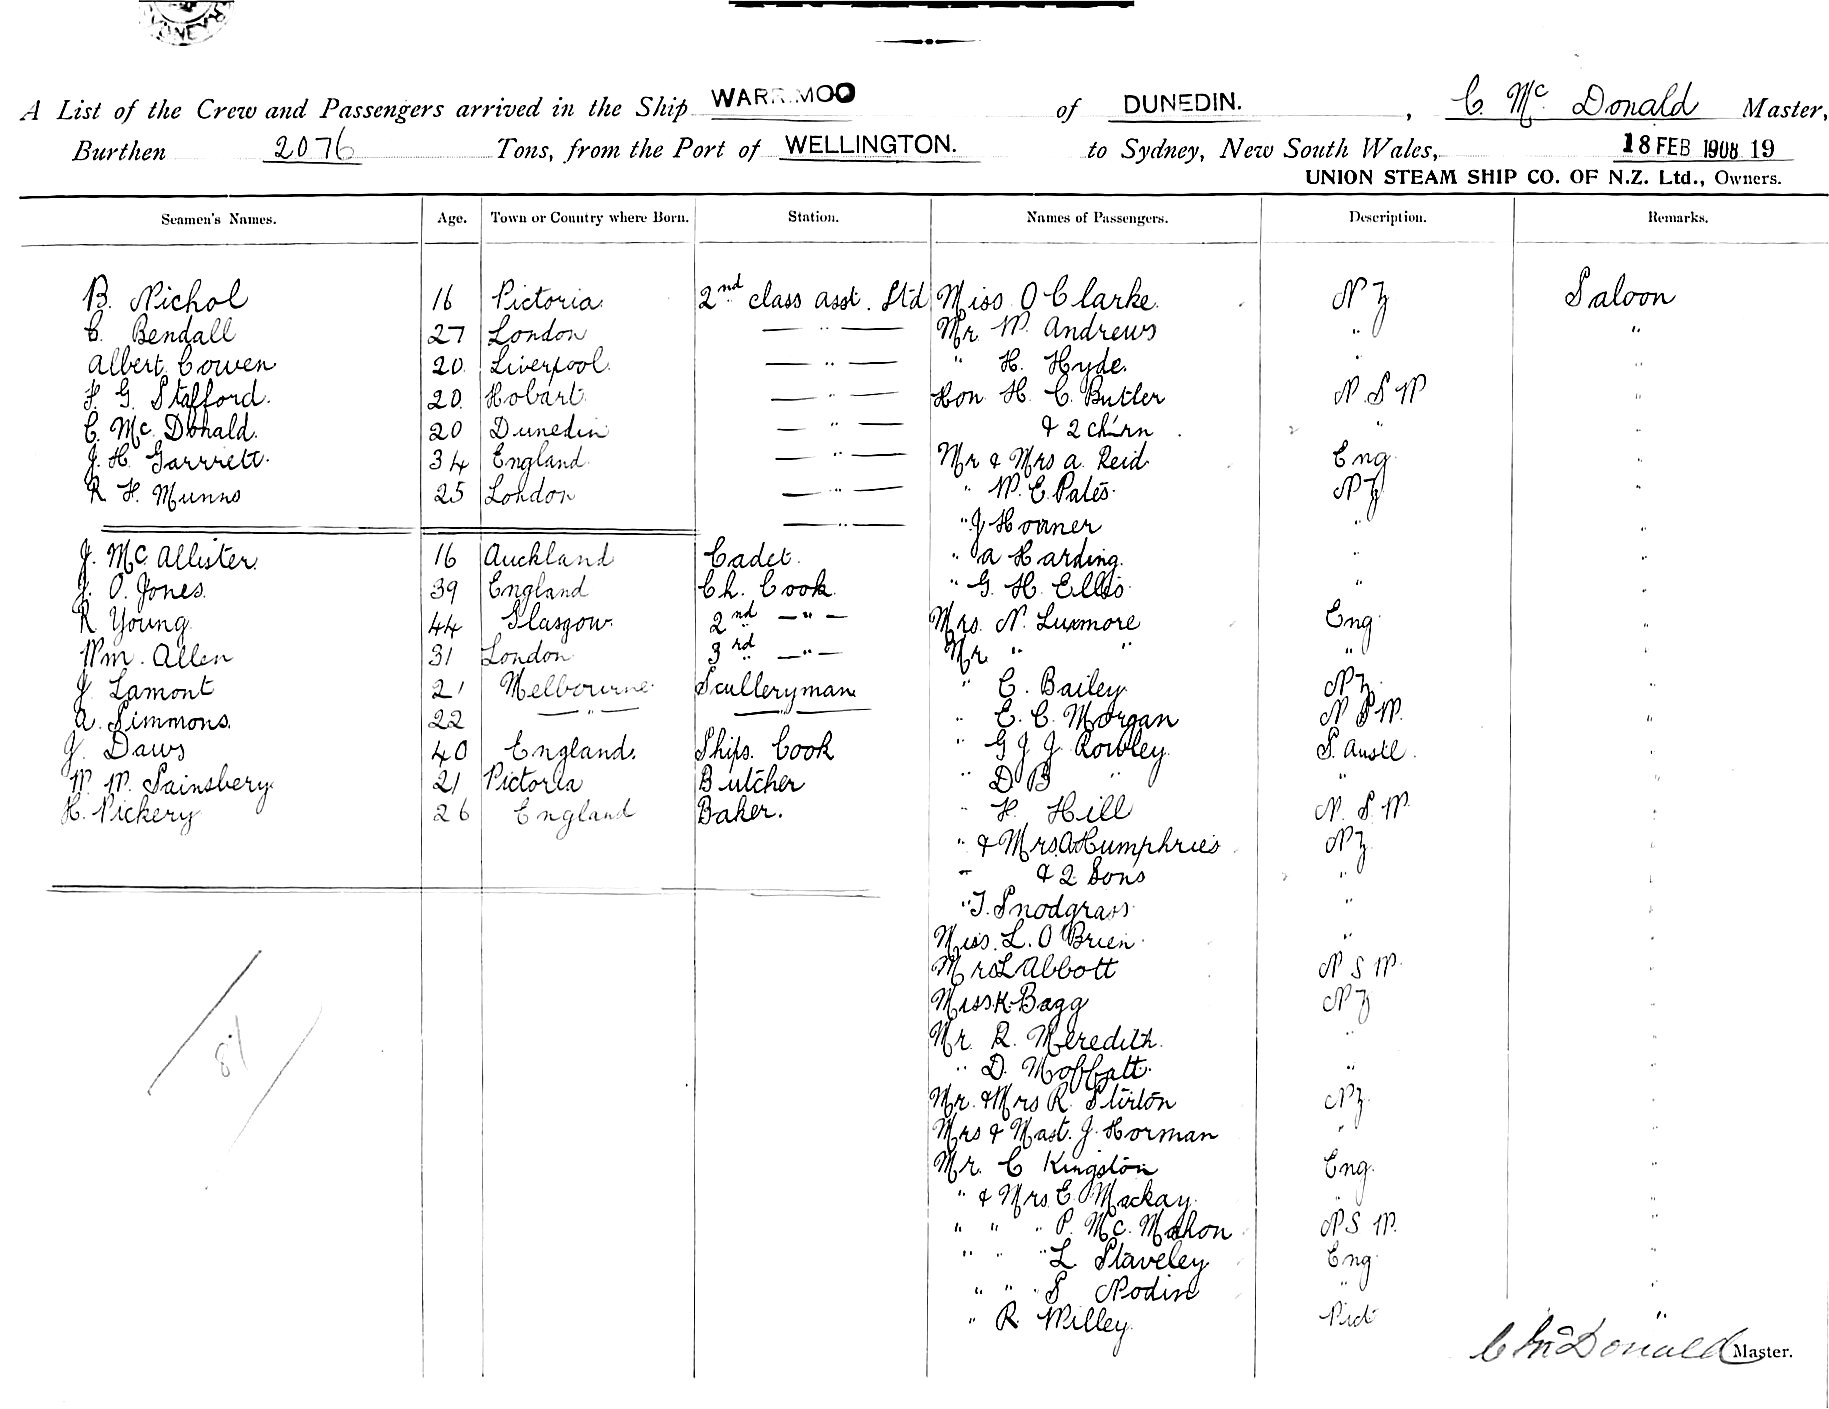 A List of the Crew and Passengers arrived in the Ship WARRIMOO of DUNEDIN. , C Mc. Donald Master,
Burthen 2076 Tons, from the Port of WELLINGTON. to Sydney, New South Wales, 18 FEB 1908 19
UNION STEAM SHIP CO. OF N.Z. Ltd., Owners.
Seamen's Names. Age. Town or Country where Born. Station. Names of Passengers. Description. Remarks.
B. Nichol 16 Victoria 2nd class asst. Std Miss O Clarke. NZ Saloon
C. Bendall 27 London — " — Mr W. Andrews " "
Albert Cowen 20. Liverpool. — " — " H. Hyde. " "
F. G. Stafford. 20. Hobart. — " — Hon H. C. Butler N.S.W "
C. Mc. Donald. 20 Dunedin — " — & 2 ch'rn . " "
J. H. Garrrett. 34 England. — " — Mr & Mrs A. Reid. Eng. "
R F. Munns 25 London — " — " W. C. Vates. NZ "
— " — " J Horner " "
J. Mc Allister. 16 Auckland Cadet. " A Harding. " "
J. O. Jones. 39 England Ch. Cook. " G. H. Ellis " "
R Young 44 Glasgow. 2nd — " — Mrs. N. Luxmore Eng. "
Wm. Allen 31 London 3rd — " — Mr " " " "
J. Lamont 21 Melbourne. Sculleryman " C. Bailey. NZ. "
A. Simmons. 22 — " — — " — " E. C. Morgan N.S.W. "
J. Daws 40 England. Ships. Cook " G J J Rowley. S. Austl. "
W. W. Sainsbery. 21 Victoria Butcher " D B " " "
H. Vickery 26 England Baker. " F. Hill N.S.W. "
" & Mrs A Humphries NZ. "
" & 2 Sons " "
" T. Snodgrass. " "
Miss. L. O'Brien. " "
Mrs L Abbott N S W. "
Miss K. Bagg NZ "
Mr. R. Meredith. " "
" D. Moffatt. " "
Mr. & Mrs R. Stirton NZ. "
Mrs & Mast. J. Horman " "
Mr. C Kingston Eng. "
" & Mrs E. Mackay. " "
" " " P. Mc. Mahon N S W. "
" " " L. Staveley Eng. "
" " " S Nodin " "
" R Willey. Vict "
C McDonald Master.